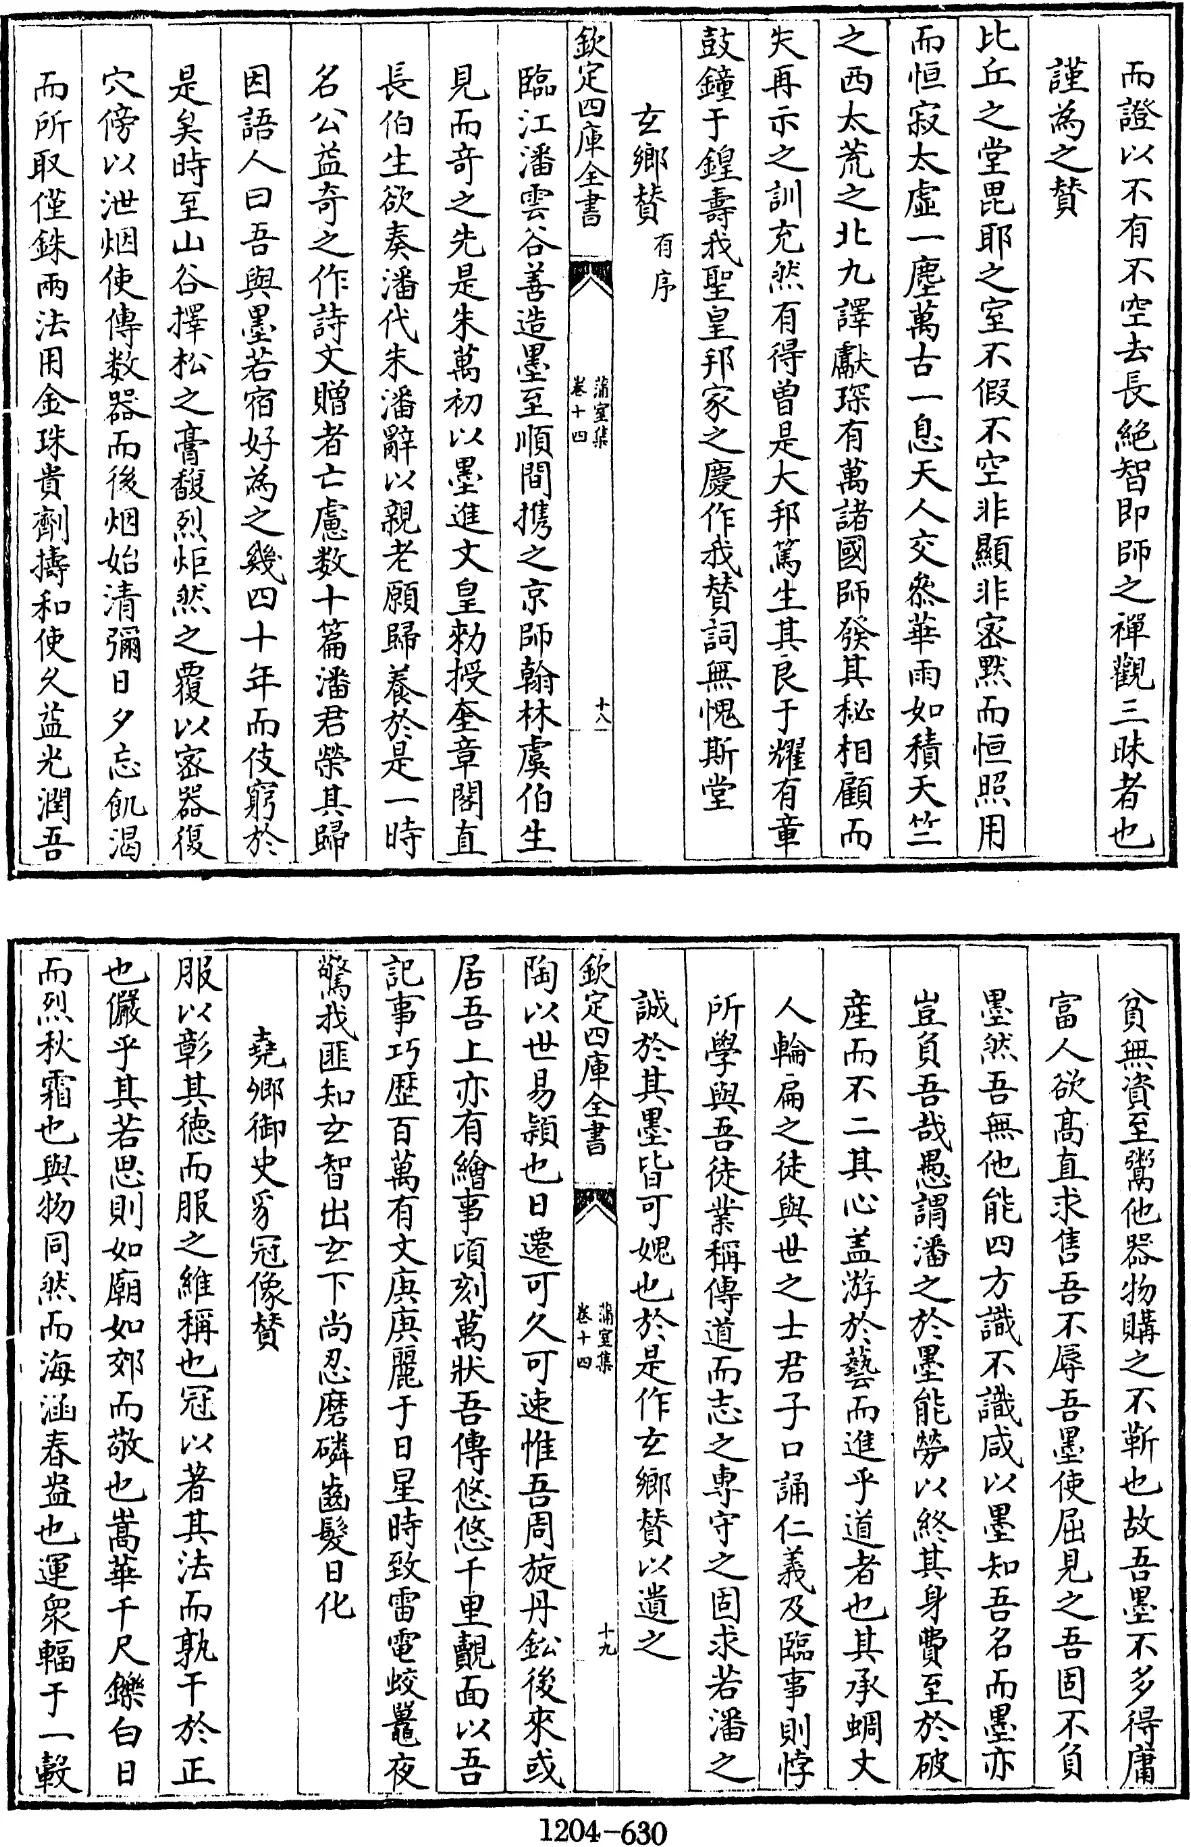 而證以不有不空去長絶智即師之禪觀三昧者也
謹為之賛
比丘之堂毘耶之室不假不空非顯非宻黙而恒照用
而恒寂太虛一塵萬古一息天人交叅華雨如積天竺
之西太荒之北九譯獻琛有萬諸國師發其秘相顧而
失再示之訓充然有得曽是大邦篤生其良于耀有章
鼓鐘于鍠壽我聖皇邦家之慶作我賛詞無愧斯堂
玄鄉賛有序
欽定四庫全書 蒲室集 卷十四 十八
臨江潘雲谷善造墨至順間携之京師翰林虞伯生
見而奇之先是朱萬初以墨進文皇勑授奎章閣直
長伯生欲奏潘代朱潘辭以親老願歸養於是一時
名公益奇之作詩文贈者亡慮数十篇潘君榮其歸
因語人曰吾與墨若宿好為之幾四十年而伎窮於
是矣時至山谷擇松之膏馥烈炬然之覆以宻器復
穴傍以泄烟使傳数器而後烟始清彌日夕忘飢渴
而所取僅銖兩法用金珠貴劑擣和使久益光潤吾
貧無資至鬻他器物購之不靳也故吾墨不多得庸
富人欲高直求售吾不辱吾墨使屈見之吾固不負
墨然吾無他能四方識不識咸以墨知吾名而墨亦
豈負吾哉愚謂潘之於墨能勞以終其身費至於破
産而不二其心盖游於藝而進乎道者也其承蜩丈
人輪扁之徒與世之士君子口誦仁義及臨事則悖
所學與吾徒業稱傳道而志之専守之固求若潘之
誠於其墨皆可媿也於是作玄鄉賛以遺之
欽定四庫全書 蒲室集 卷十四 十九
陶以世易穎也日遷可久可速惟吾周旋丹鈆後來或
居吾上亦有繪事頃刻萬狀吾傳悠悠千里覿面以吾
記事巧歴百萬有文庚庚麗于日星時致雷電蛟鼉夜
驚我匪知玄智出玄下尚忍磨磷齒髮日化
堯卿御史豸冠像賛
服以彰其徳而服之維稱也冠以著其法而孰干於正
也儼乎其若思則如廟如郊而敬也嵩華千尺鑠白日
而烈秋霜也與物同然而海涵春盎也運衆輻于一轂
1204-630